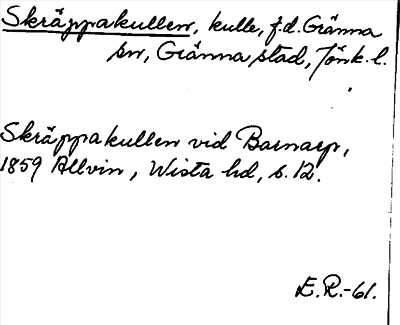 Skräppakullen, kulle, f.d. Gränna
sn, Gränna stad, Jönk. l.
Skräppakullen vid Barnarp,
1859 Allvin, Wista hd, s. 12.
E.R.-61.